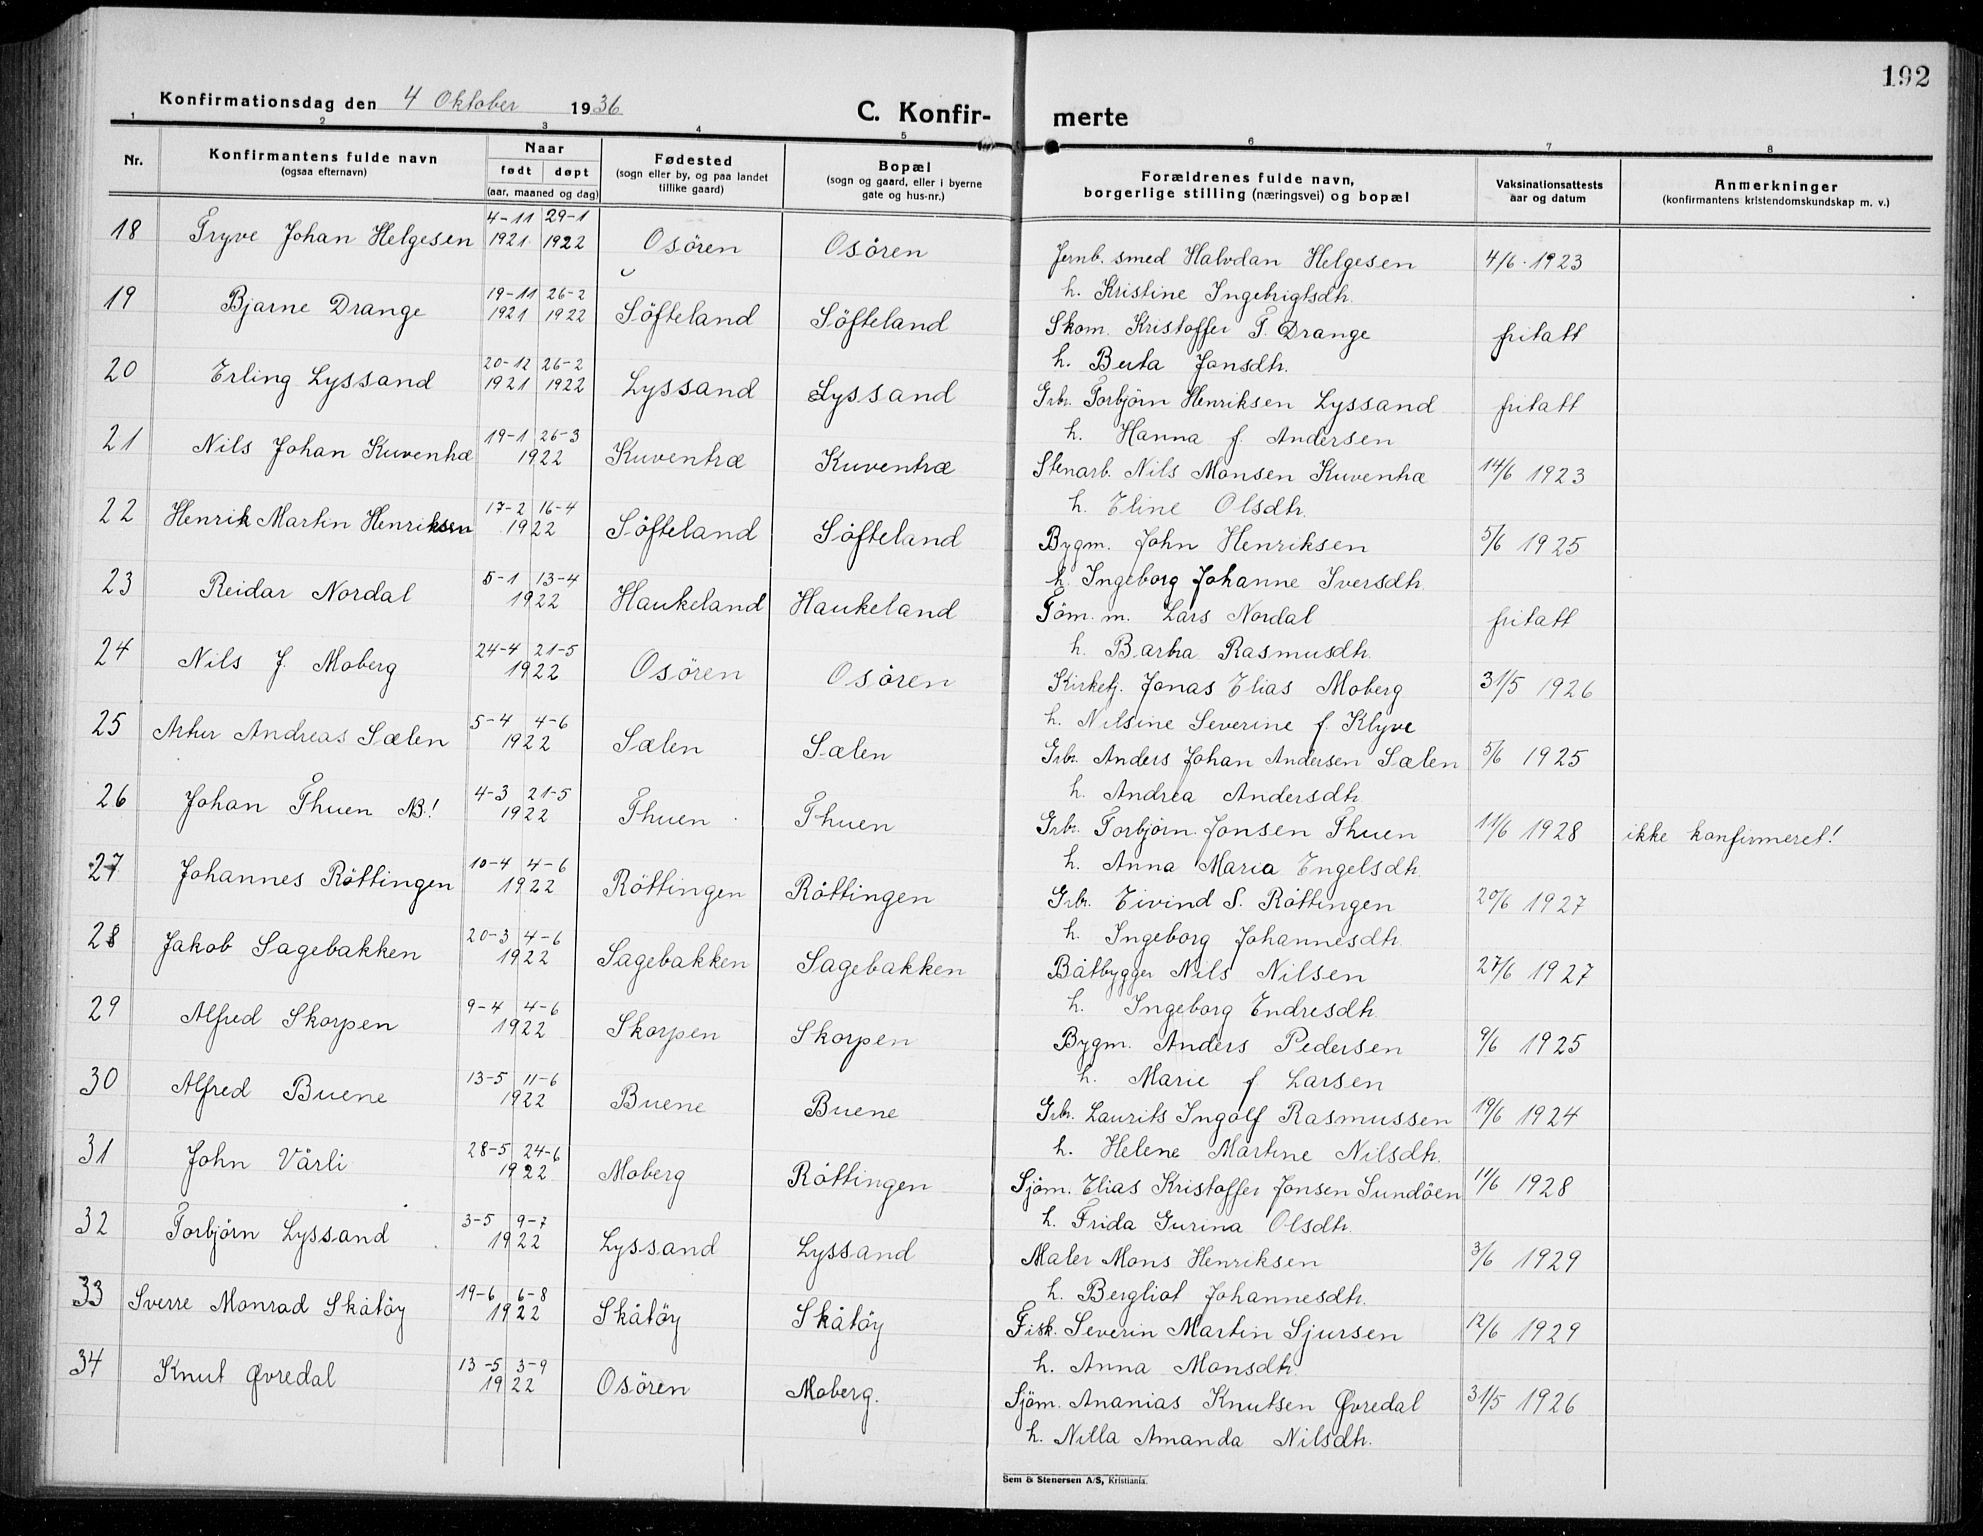 192
Konfirmationsdag den 4 Oktober 1936
C. Konfir- merte
1 2 3 4 5 6 7 8
Nr. Konfirmantens fulde navn (ogsaa efternavn) Naar født døpt (aar, maaned og dag) Fødested (sogn eller by, og paa landet tillike gaard) Bopæl (sogn og gaard, eller i byerne gate og hus-nr.) Forældrenes fulde navn, borgerlige stilling (næringsvei) og bopæl Vaksinationsattests aar og datum Anmerkninger (konfirmantens kristendomskundskap m. v.)
18 Tryve Johan Helgesen 4-11 1921 29-1 1922 Osören Osören Jernb. smed Halvdan Helgesen 4/6 - 1923
h. Kristine Ingebrigtsdh.
19 Bjarne Drange 19-11 1921 26-2 1922 Söfteland Söfteland Skom. Kristoffer T. Drange fritatt
h. Berta Jonsdh.
20 Erling Lyssand 20-12 1921 26-2 1922 Lyssand Lyssand Grbr. Torbjörn Henriksen Lyssand fritatt
h. Hanna f. Andersen
21 Nils Johan Kuventræ 19-1 26-3 1922 Kuventræ Kuventræ Stenarb. Nils Monsen Kuventræ 14/6 1923
h. Eline Olsdh.
22 Henrik Martin Henriksen 17-2 16-4 1922 Söfteland Söfteland Bygm. John Henriksen 5/6 1925
h. Ingeborg Johanne Iversdh.
23 Reidar Nordal 5-1 13-4 1922 Haukeland Haukeland Töm. m. Lars Nordal fritatt
h. Barbra Rasmusdh.
24 Nils J. Moberg 24-4 21-5 1922 Osören Osören Kirketj. Jonas Elias Moberg 31/5 1926
h. Nilsine Severine f. Klyve
25 Artur Andreas Sælen 5-4 4-6 1922 Sælen Sælen Grbr. Anders Johan Andersen Sælen 5/6 1925
h. Andrea Andersdh.
26 Johan Thuen NB! 4-3 21-5 1922 Thuen Thuen Grbr. Torbjörn Jonsen Thuen 11/6 1928 ikke konfirmeret!
h. Anna Maria Engelsdh.
27 Johannes Röttingen 10-4 4-6 1922 Röttingen Röttingen Grbr. Eivind S. Röttingen 20/6 1927
h. Ingeborg Johannesdh.
28 Jakob Sagebakken 20-3 4-6 1922 Sagebakken Sagebakken Båtbygger Nils Nilsen 27/6 1927
h. Ingeborg Endresdh.
29 Alfred Skorpen 9-4 4-6 1922 Skorpen Skorpen Bygm. Anders Pedersen 9/6 1925
h. Marie f Larsen
30 Alfred Buene 13-5 11-6 1922 Buene Buene Grbr. Laurits Ingolf Rasmussen 19/6 1924
h. Helene Martine Nilsdh.
31 John Vårli 28-5 24-6 1922 Moberg Röttingen Sjöm. Elias Kristoffer Jonsen Sundöen 11/6 1928
h. Frida Gurina Olsdh.
32 Torbjörn Lyssand 3-5 9-7 1922 Lyssand Lyssand Maler Mons Henriksen 3/6 1929
h. Bergliot Johannesdh.
33 Sverre Monrad Skåtöy 19-6 6-8 1922 Skåtöy Skåtöy Fisk. Severin Martin Sjursen 12/6 1929
h. Anna Monsdh.
34 Knut Øvredal 13-5 3-9 1922 Osören Moberg. Sjöm. Ananias Knutsen Øvredal 31/5 1926
h. Nilla Amanda Nilsdh.
Sem & Stenersen A/S, Kristiania.